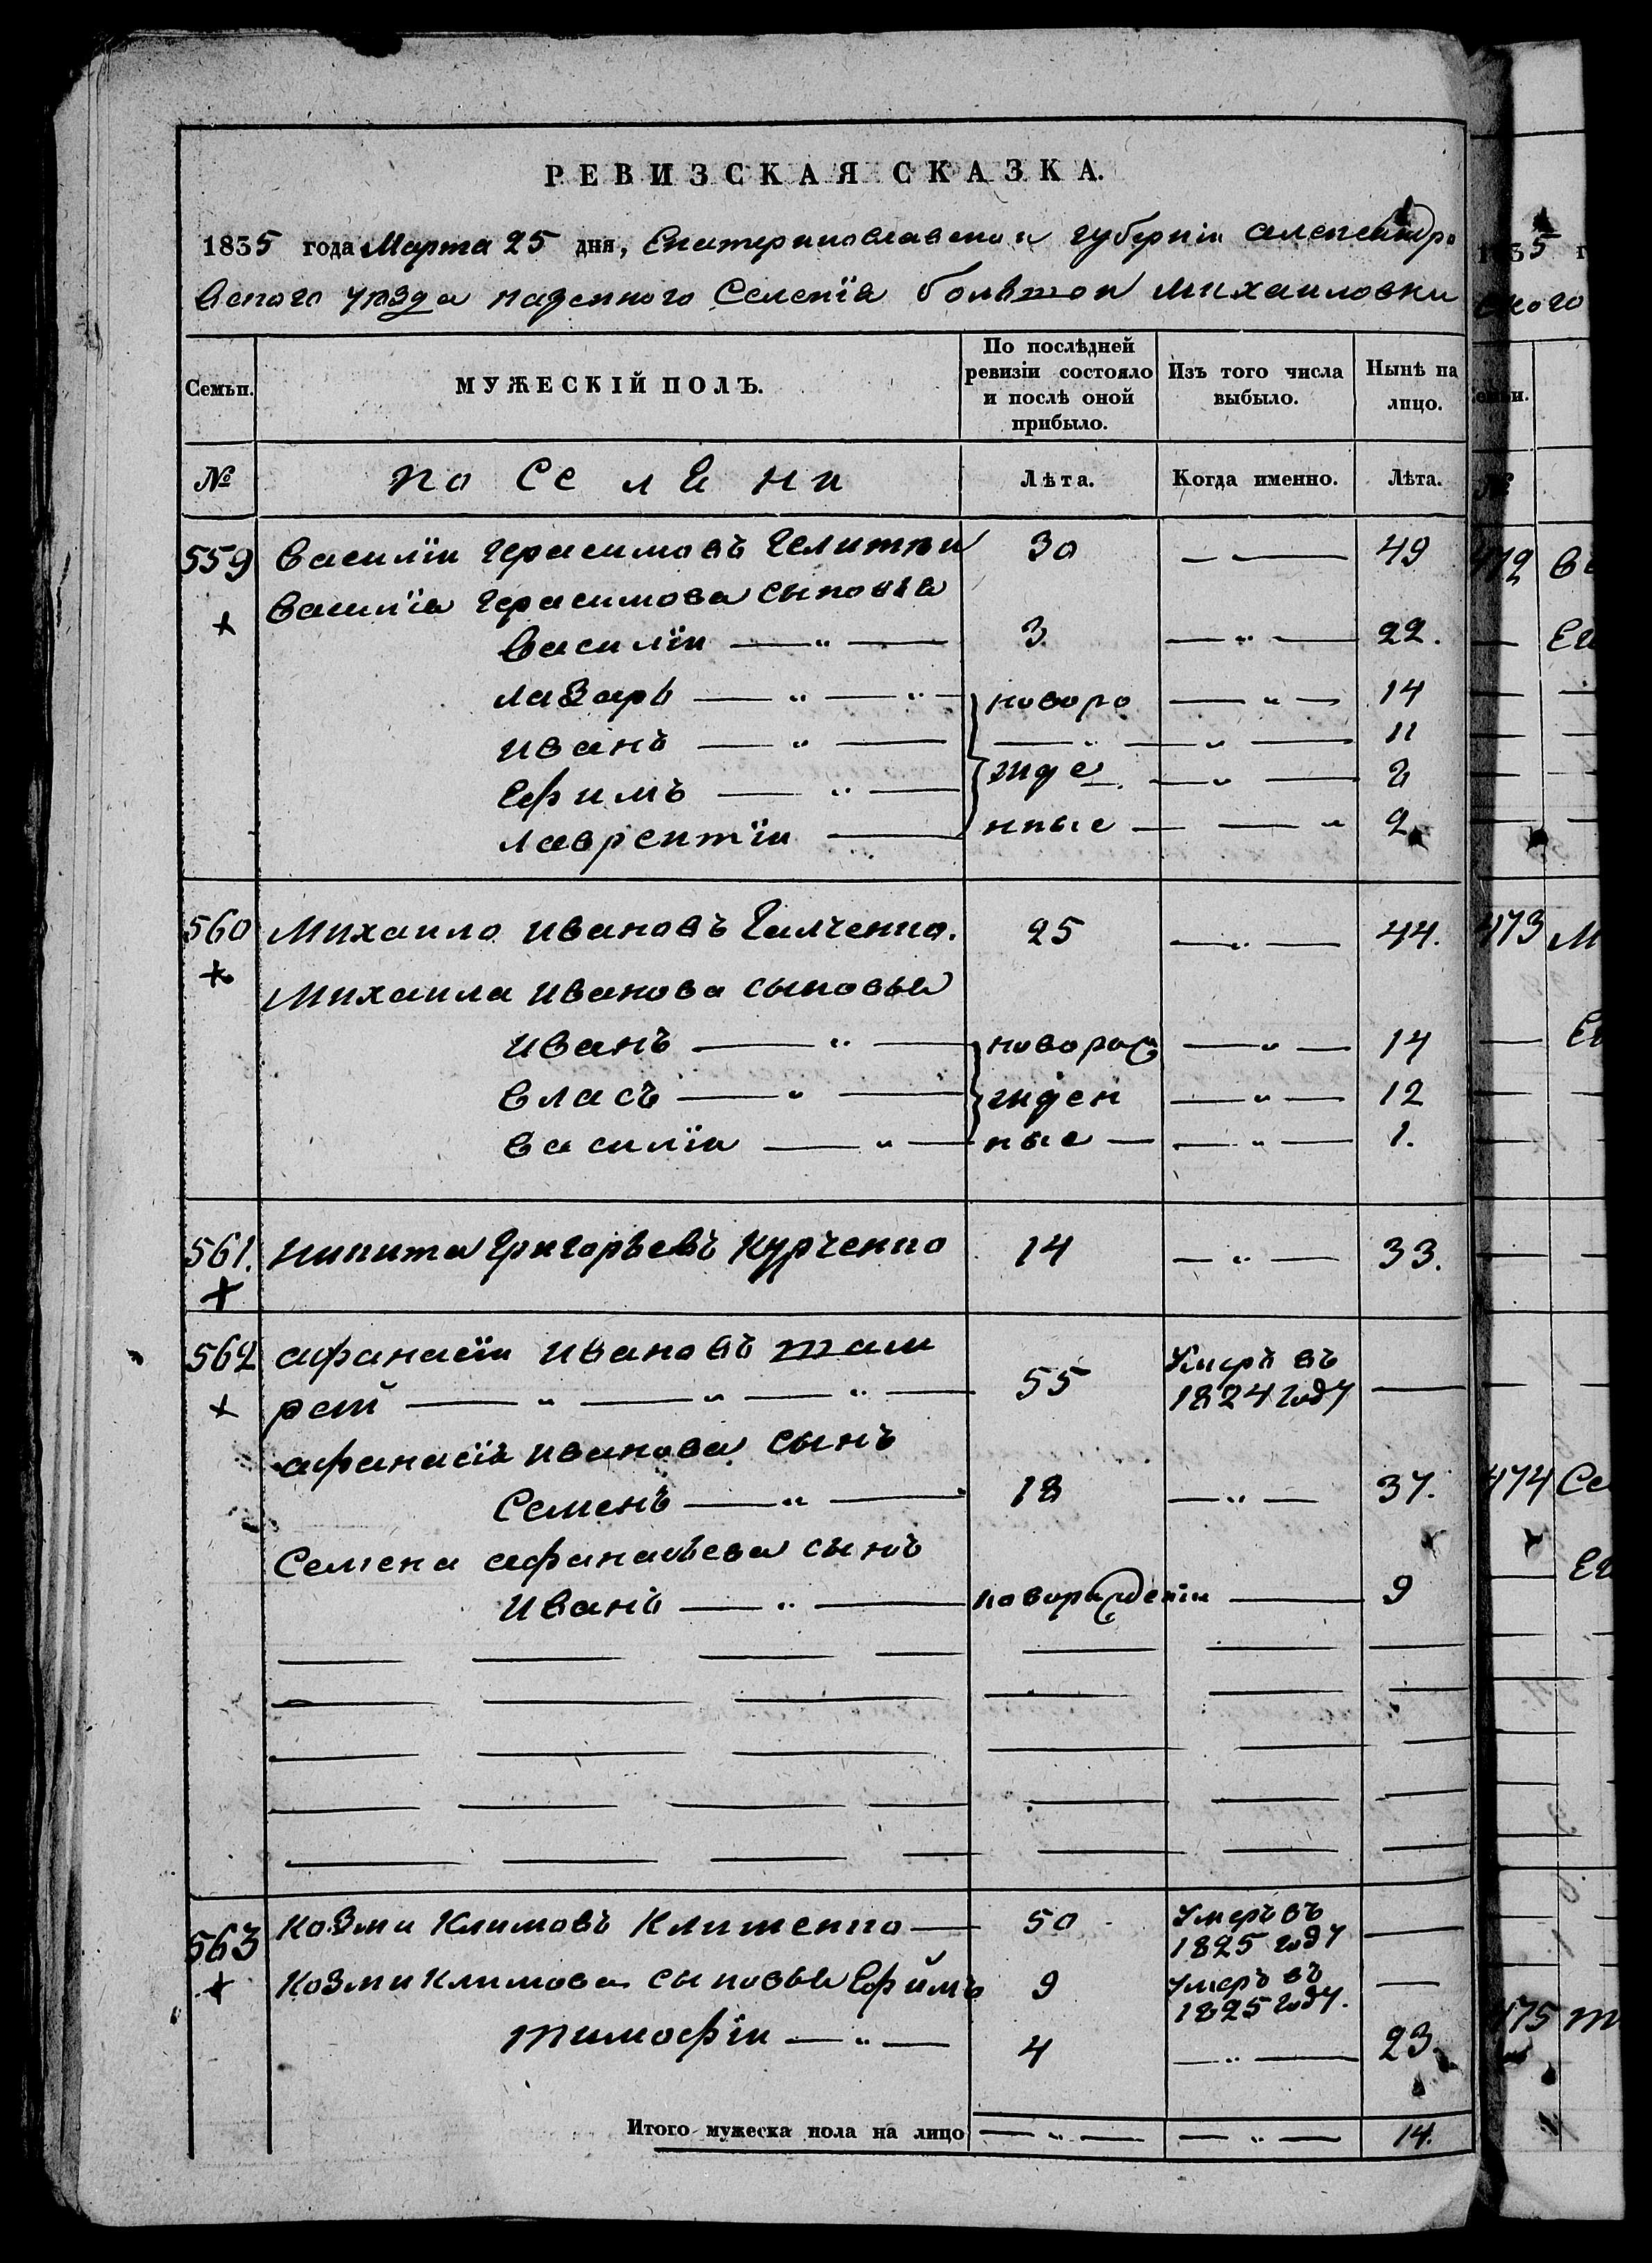 РЕВИЗСКАЯ СКАЗКА.
1835 года Марта 25 дня, Екатеринославской губерніи александро
вского уезда казенного Селенія большой михаиловки
Семьи. МУЖЕСКІЙ ПОЛЪ. По послѣдней ревизіи состояло и послѣ оной прибыло. Изъ того числа выбыло. Нынѣ на лицо.
№ по Се л Е ни Лѣта. Когда именно. Лѣта.
559 Василіи Герасимовъ 30 — — 49
Василіа Герасимова сыновья
Василіи — „ — 3 — „ — 22.
лазарь — „ — „ — новоро — „ — 14
иванъ — „ — — „ — 11
Ефимъ — „ — жде — „ — 2
лаврентіи — нные — — „ 2
560 Михаило ивановъ Галченко. 25 — „ — 44.
Михаила иванова сыновья
иванъ — „ — новорож — „ — 14
власъ — „ — жден — „ — 12
василіи — „ — ные — — „ — 1.
561. никита Григорьевъ Курченко 14 — „ — 33.
562 афанасіи ивановъ там
рет — „ — „ — „ — 55 Умеръ въ 1824 году —
афанасія иванова сынъ
Семенъ — „ — 18 — „ — 37.
Семена афанасьева сынъ
иванъ — „ — новорожденіи — 9
563 козми климовъ клименко — 50 Умеръ въ 1825 году —
козми климова сыновья Ефимъ 9 умеръ въ 1825 году. —
тимофіи — „ — 4 — „ — 23.
Итого мужеска пола на лицо — „ — — „ — 14.